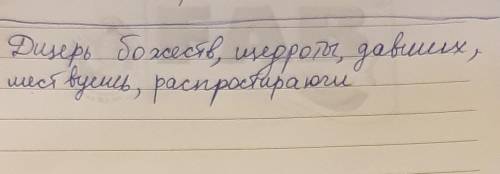 Дщерь божеств, щедроты, давших,
шествуешь, распростираючи